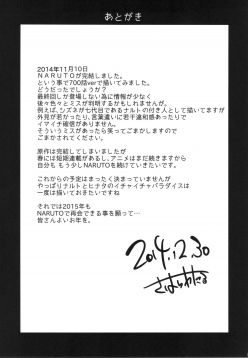 あとがき
2014年11月10日
NARUTOが完結しました。
という事で700話verで描いてみました。
どうだったでしょうか?
最終回しか登場しない為に情報が少なく
後々色々とミスが判明するかもしれませんが。
例えば、シズネが七代目であるナルトの付き人として描いてますが
外見が若かったり、言葉遣いに若干違和感あったりで
イマイチ確信がありません。
そういうミスがあったら笑ってごまかしますので
ごまかされてください。
原作は完結してしまいましたが
春には短期連載があるし、アニメはまだ続きますから
自分ももう少しNARUTOを続けていきたいです。
これからの予定はまったく決まっていませんが
やっぱりナルトとヒナタのイチャイチャパラダイスは
一度は描いておきたいですね
それでは2015年も
NARUTOで再会できる事を願って…
皆さんよいお年を。
2014.12.30